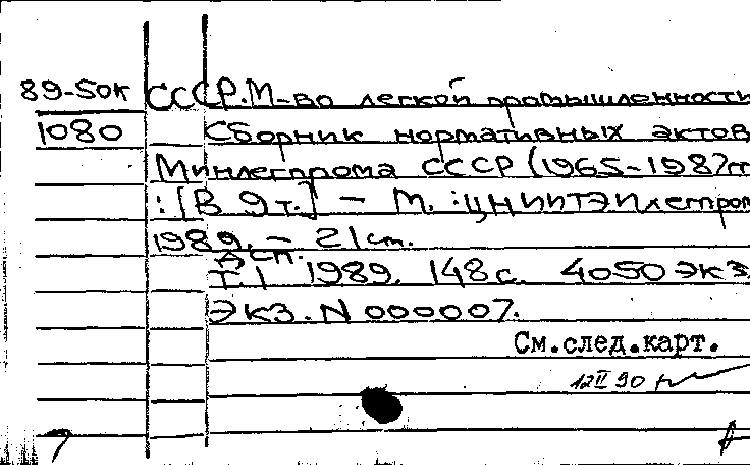 89-50к СССР. М-во легкой промышленности
1080 Сборник нормативных актов
Минлегпрома СССР (1965-1987гг
: [В 9 т.] – М. : ЦНИИТЭИлегпром
1989. – 21 см.
ДСП.
Т. 1 1989. 148 с. 4050 экз
Экз. N 000007.
См.след.карт.
12 II 90